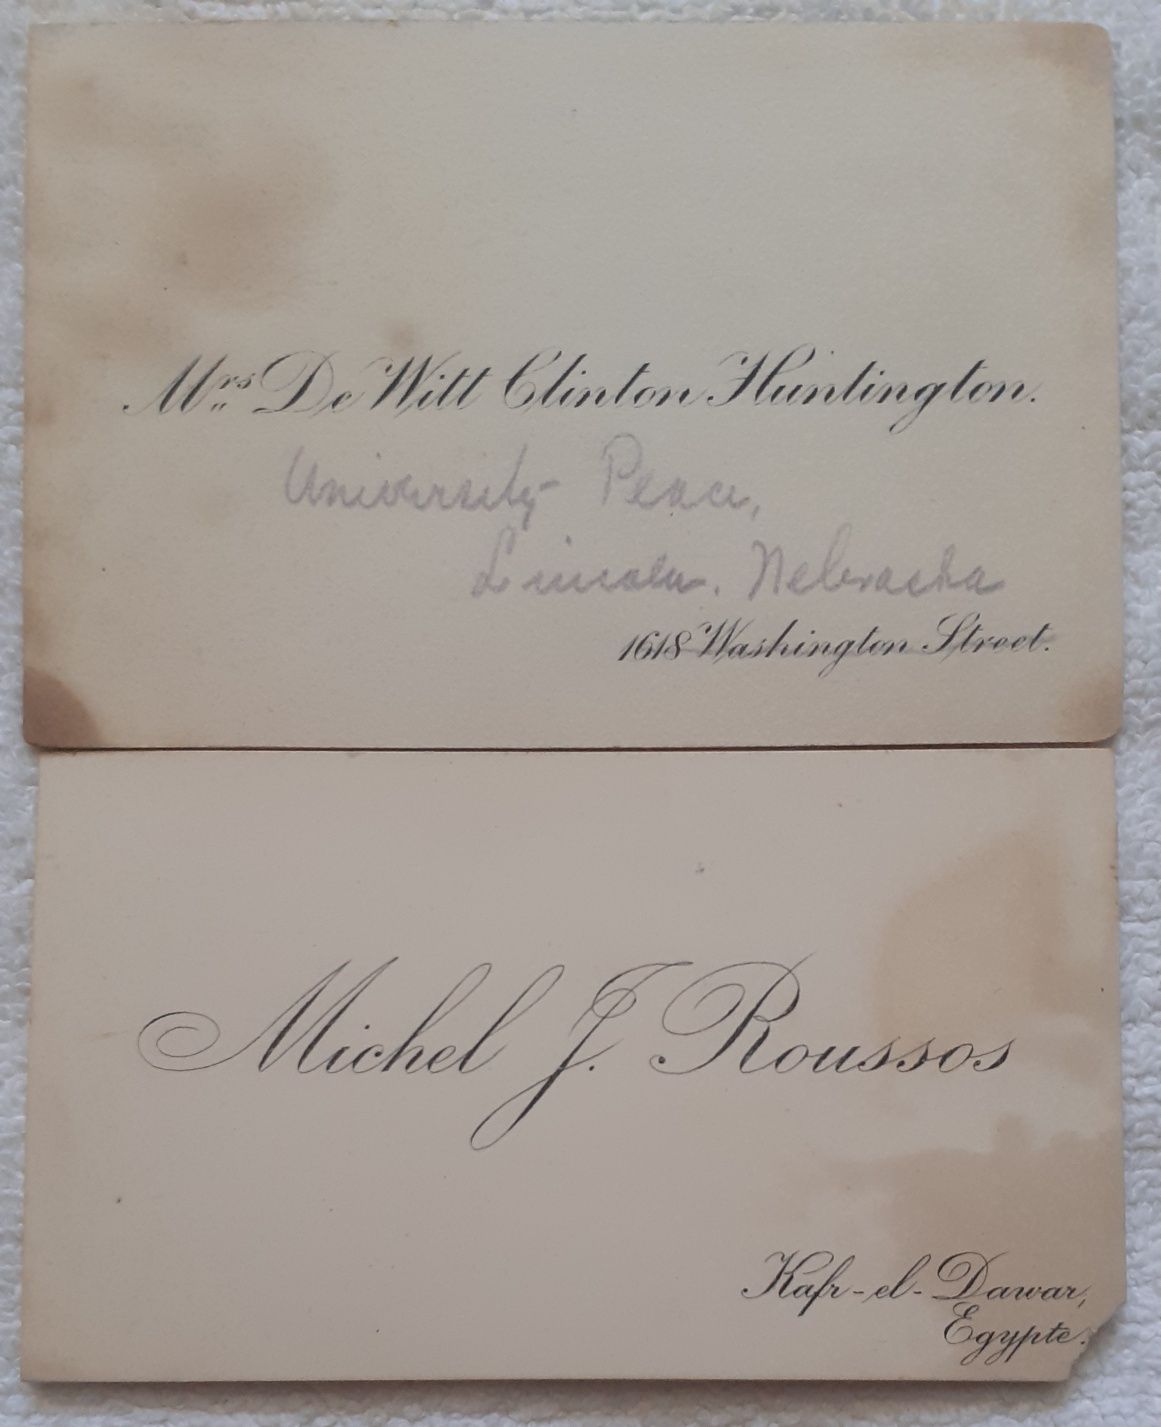 Mrs De Witt Clinton Huntington.
University Place,
Lincoln. Nebraska
1618 Washington Street.
Michel J. Roussos
Kafr-el-Dawar,
Egypte.